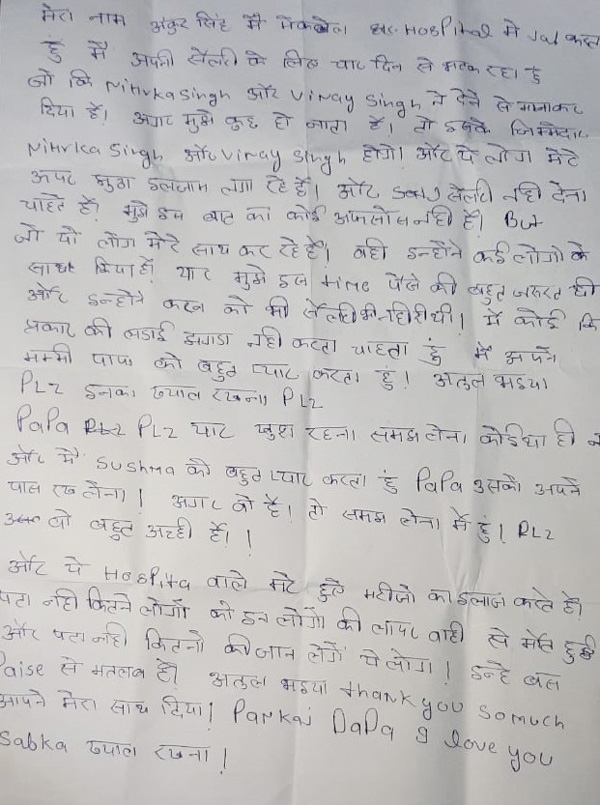 मेरा नाम अंकुर सिंह मै मेकवेल Hospital मे Jab करता
हुं मै अपनी सैलरी के लिए चार दिन से भटक रहा हुं
जो कि Niharika singh और Vinay singh ने देने से मानाकर
दिया है। अगर मुझे कुछ हो जाता है। तो इसके जिम्मेदार
Niharika Singh और Vinay Singh होगे। और ये लोग मेरे
ऊपर झुठा इलजाम लगा रहे है। और सैलरी नही देना
चाहते है? मुझे इस बात का कोई अफसोस नही है। But
जो यो लोग मेरे साथ कर रहे है। वही इन्होने कई लोगो के
साथ किया है। यार मुझे इस time पैसे की बहुत जरूरत थी
और इन्होने करन को भी सैलरी नही दी थी। मै कोई कि
प्रकार की लडाई झगडा नही करना चाहता हुं मै अपने
मम्मी पापा को बहुत प्यार करता हुं। अतुल भइया
PLz इनका ख्याल रखना PLz
PaPa PLz यार खुश रहना समझ लेना कोई था ही न
और मै Sushma को बहुत प्यार करता हुं PaPa उसको अपने
पास रख लेना। अगर वो है। तो समझ लेना मैं हुं। PLz
वो बहुत अच्छी है।।
और ये Hospita वाले मरे हुए मरीजो का इलाज करते है।
पता नही कितने लोगों की इन लोगों की लापरवाही से मौत हुई
और पता नही कितनो की जान लेगें ये लोग। इन्हे बस
Paise से मतलब है। अतुल भइया thank you so much
आपने मेरा साथ दिया। Pankaj DaDa I love you
Sabka ख्याल रखना।